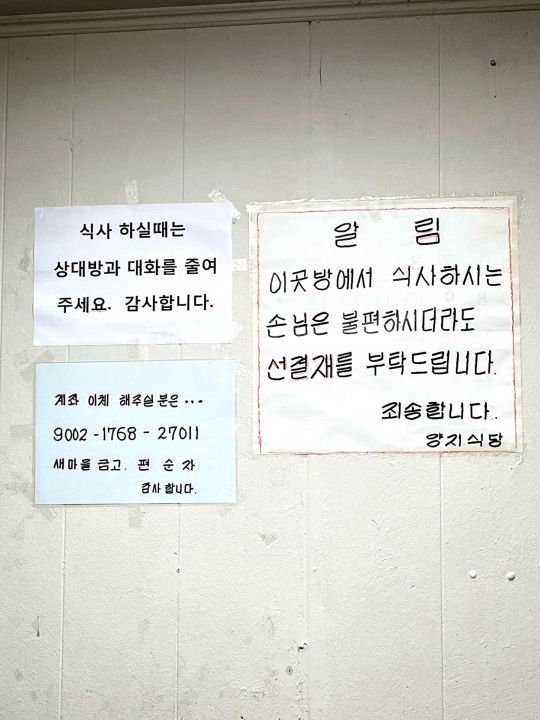 식사 하실때는
상대방과 대화를 줄여
주세요. 감사합니다.
계좌 이체 해주실 분은...
9002-1768-27011
새마을 금고. 편 순 자
감사 합니다.
알 림
이곳방에서 식사하시는
손님은 불편하시더라도
선결재를 부탁드립니다.
죄송합니다.
양지식당